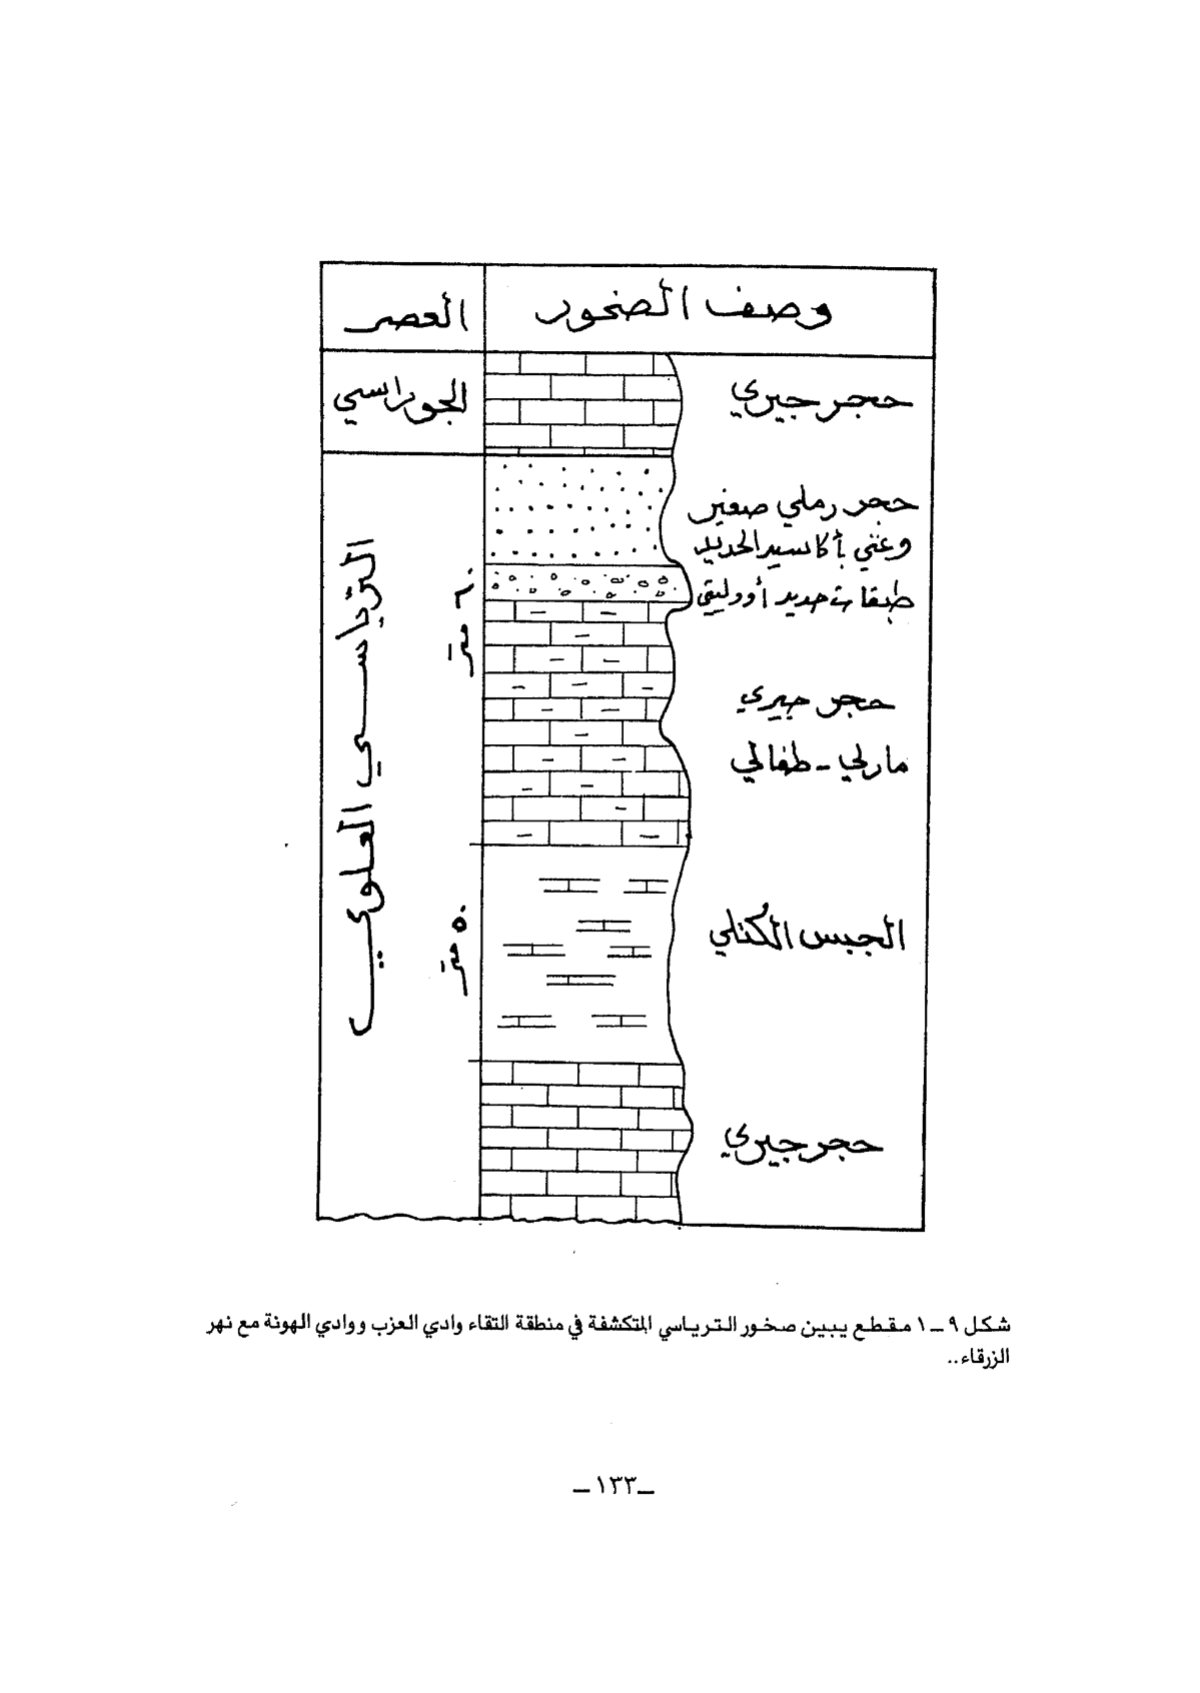 وصف الصخور
العصر
الجوراسي
حجر جيري
حجر رملي صغير
وغني بأكاسيد الحديد
طبقات حديد أووليتي
حجر جيري
مارلي - طفالي
الجبس الكُتلي
حجر جيري
الترياسي العلوي
٦٠ متر
٥٠ متر
شكل ٩ ــ ١ مقطع يبين صخور الترياسي المتكشفة في منطقة التقاء وادي العزب ووادي الهونة مع نهر
الزرقاء..
ــ ١٣٣ ــ